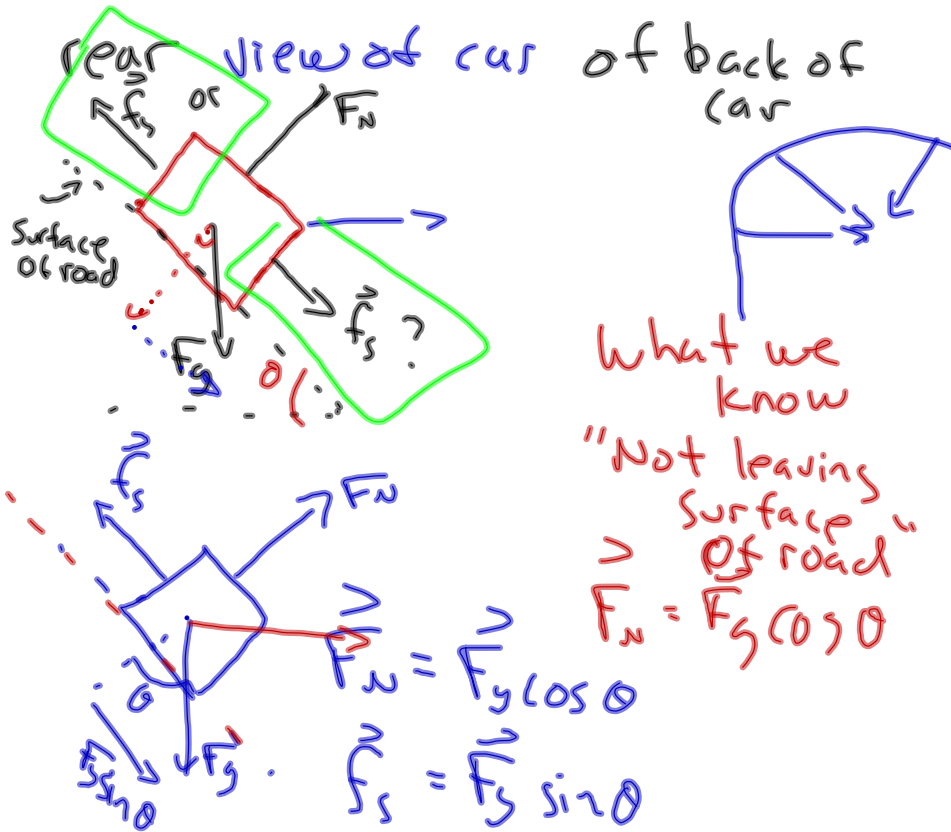 rear view of car of back of car
f⃗s or
FN
Surface of road
f⃗s ?
Fg
θ
What we know
"Not leaving surface of road"
F⃗N = Fg cos θ
f⃗s
FN
θ
Fg sin θ
F⃗g
F⃗N = F⃗g cos θ
f⃗s = F⃗g sin θ